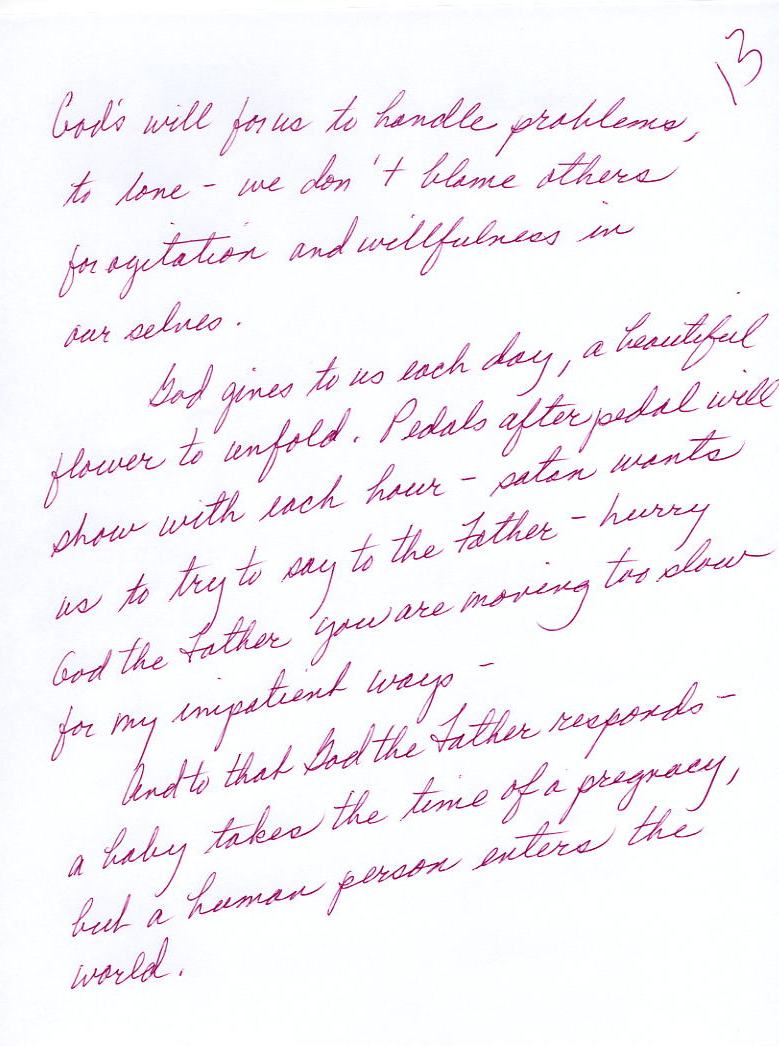 13
God's will for us to handle problems,
to love - we don't blame others
for agitation and willfulness in
our selves.
God gives to us each day, a beautiful
flower to unfold. Pedals after pedal will
show with each hour - satan wants
us to try to say to the Father - hurry
God the Father you are moving too slow
for my impatient ways -
And to that God the Father responds -
a baby takes the time of a pregnacy,
but a human person enters the
world.